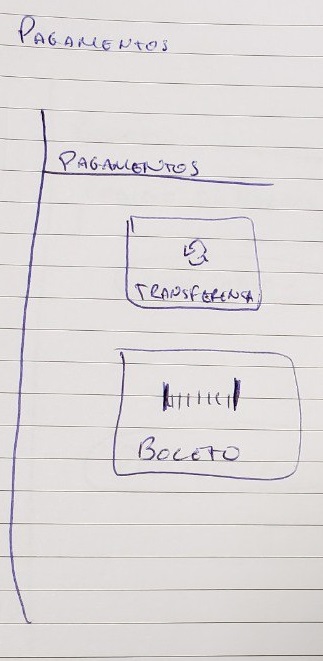 PAGAMENTOS
PAGAMENTOS
TRANSFERENSA
BOLETO